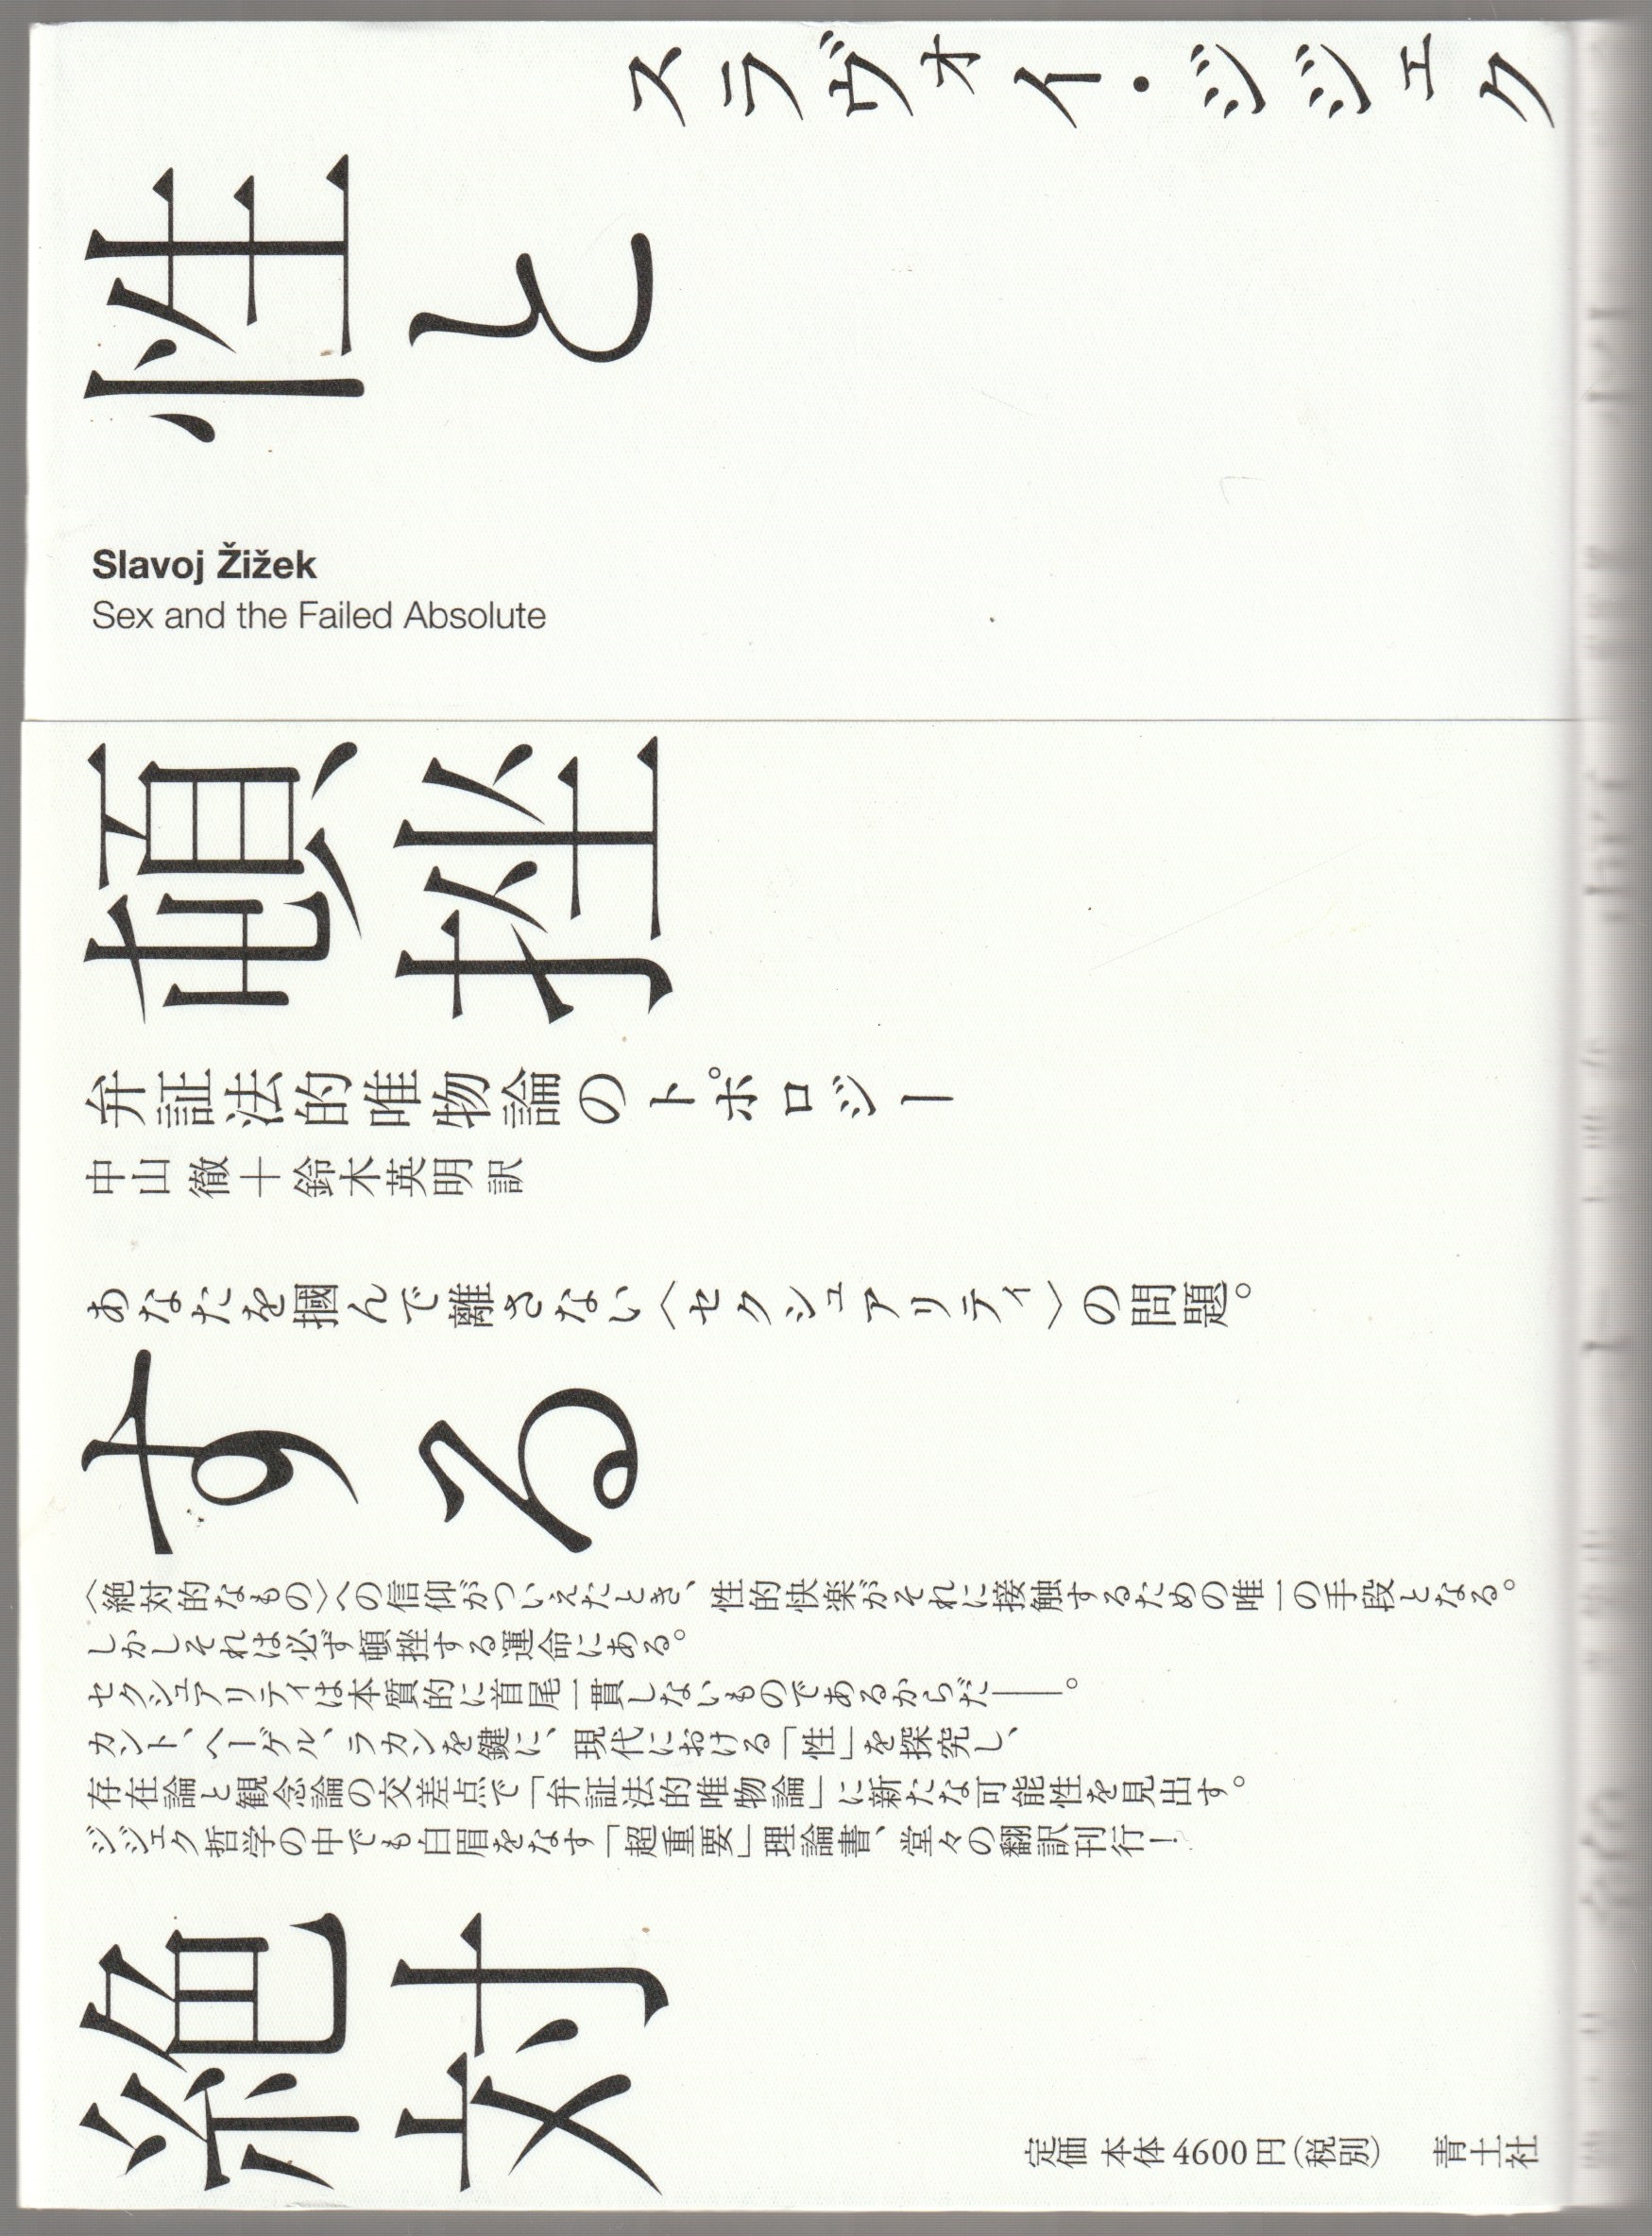 スラヴォイ・ジジェク
性と
Slavoj Žižek
Sex and the Failed Absolute
頓挫
弁証法的唯物論のトポロジー
中山 徹＋鈴木英明 訳
あなたを摑んで離さない〈セクシュアリティ〉の問題。
する
〈絶対的なもの〉への信仰がついえたとき、性的快楽がそれに接触するための唯一の手段となる。
しかしそれは必ず頓挫する運命にある。
セクシュアリティは本質的に首尾一貫しないものであるからだ――。
カント、ヘーゲル、ラカンを鍵に、現代における「性」を探究し、
存在論と観念論の交差点で「弁証法的唯物論」に新たな可能性を見出す。
ジジェク哲学の中でも白眉をなす「超重要」理論書、堂々の翻訳刊行！
絶対
定価 本体4600円（税別） 青土社